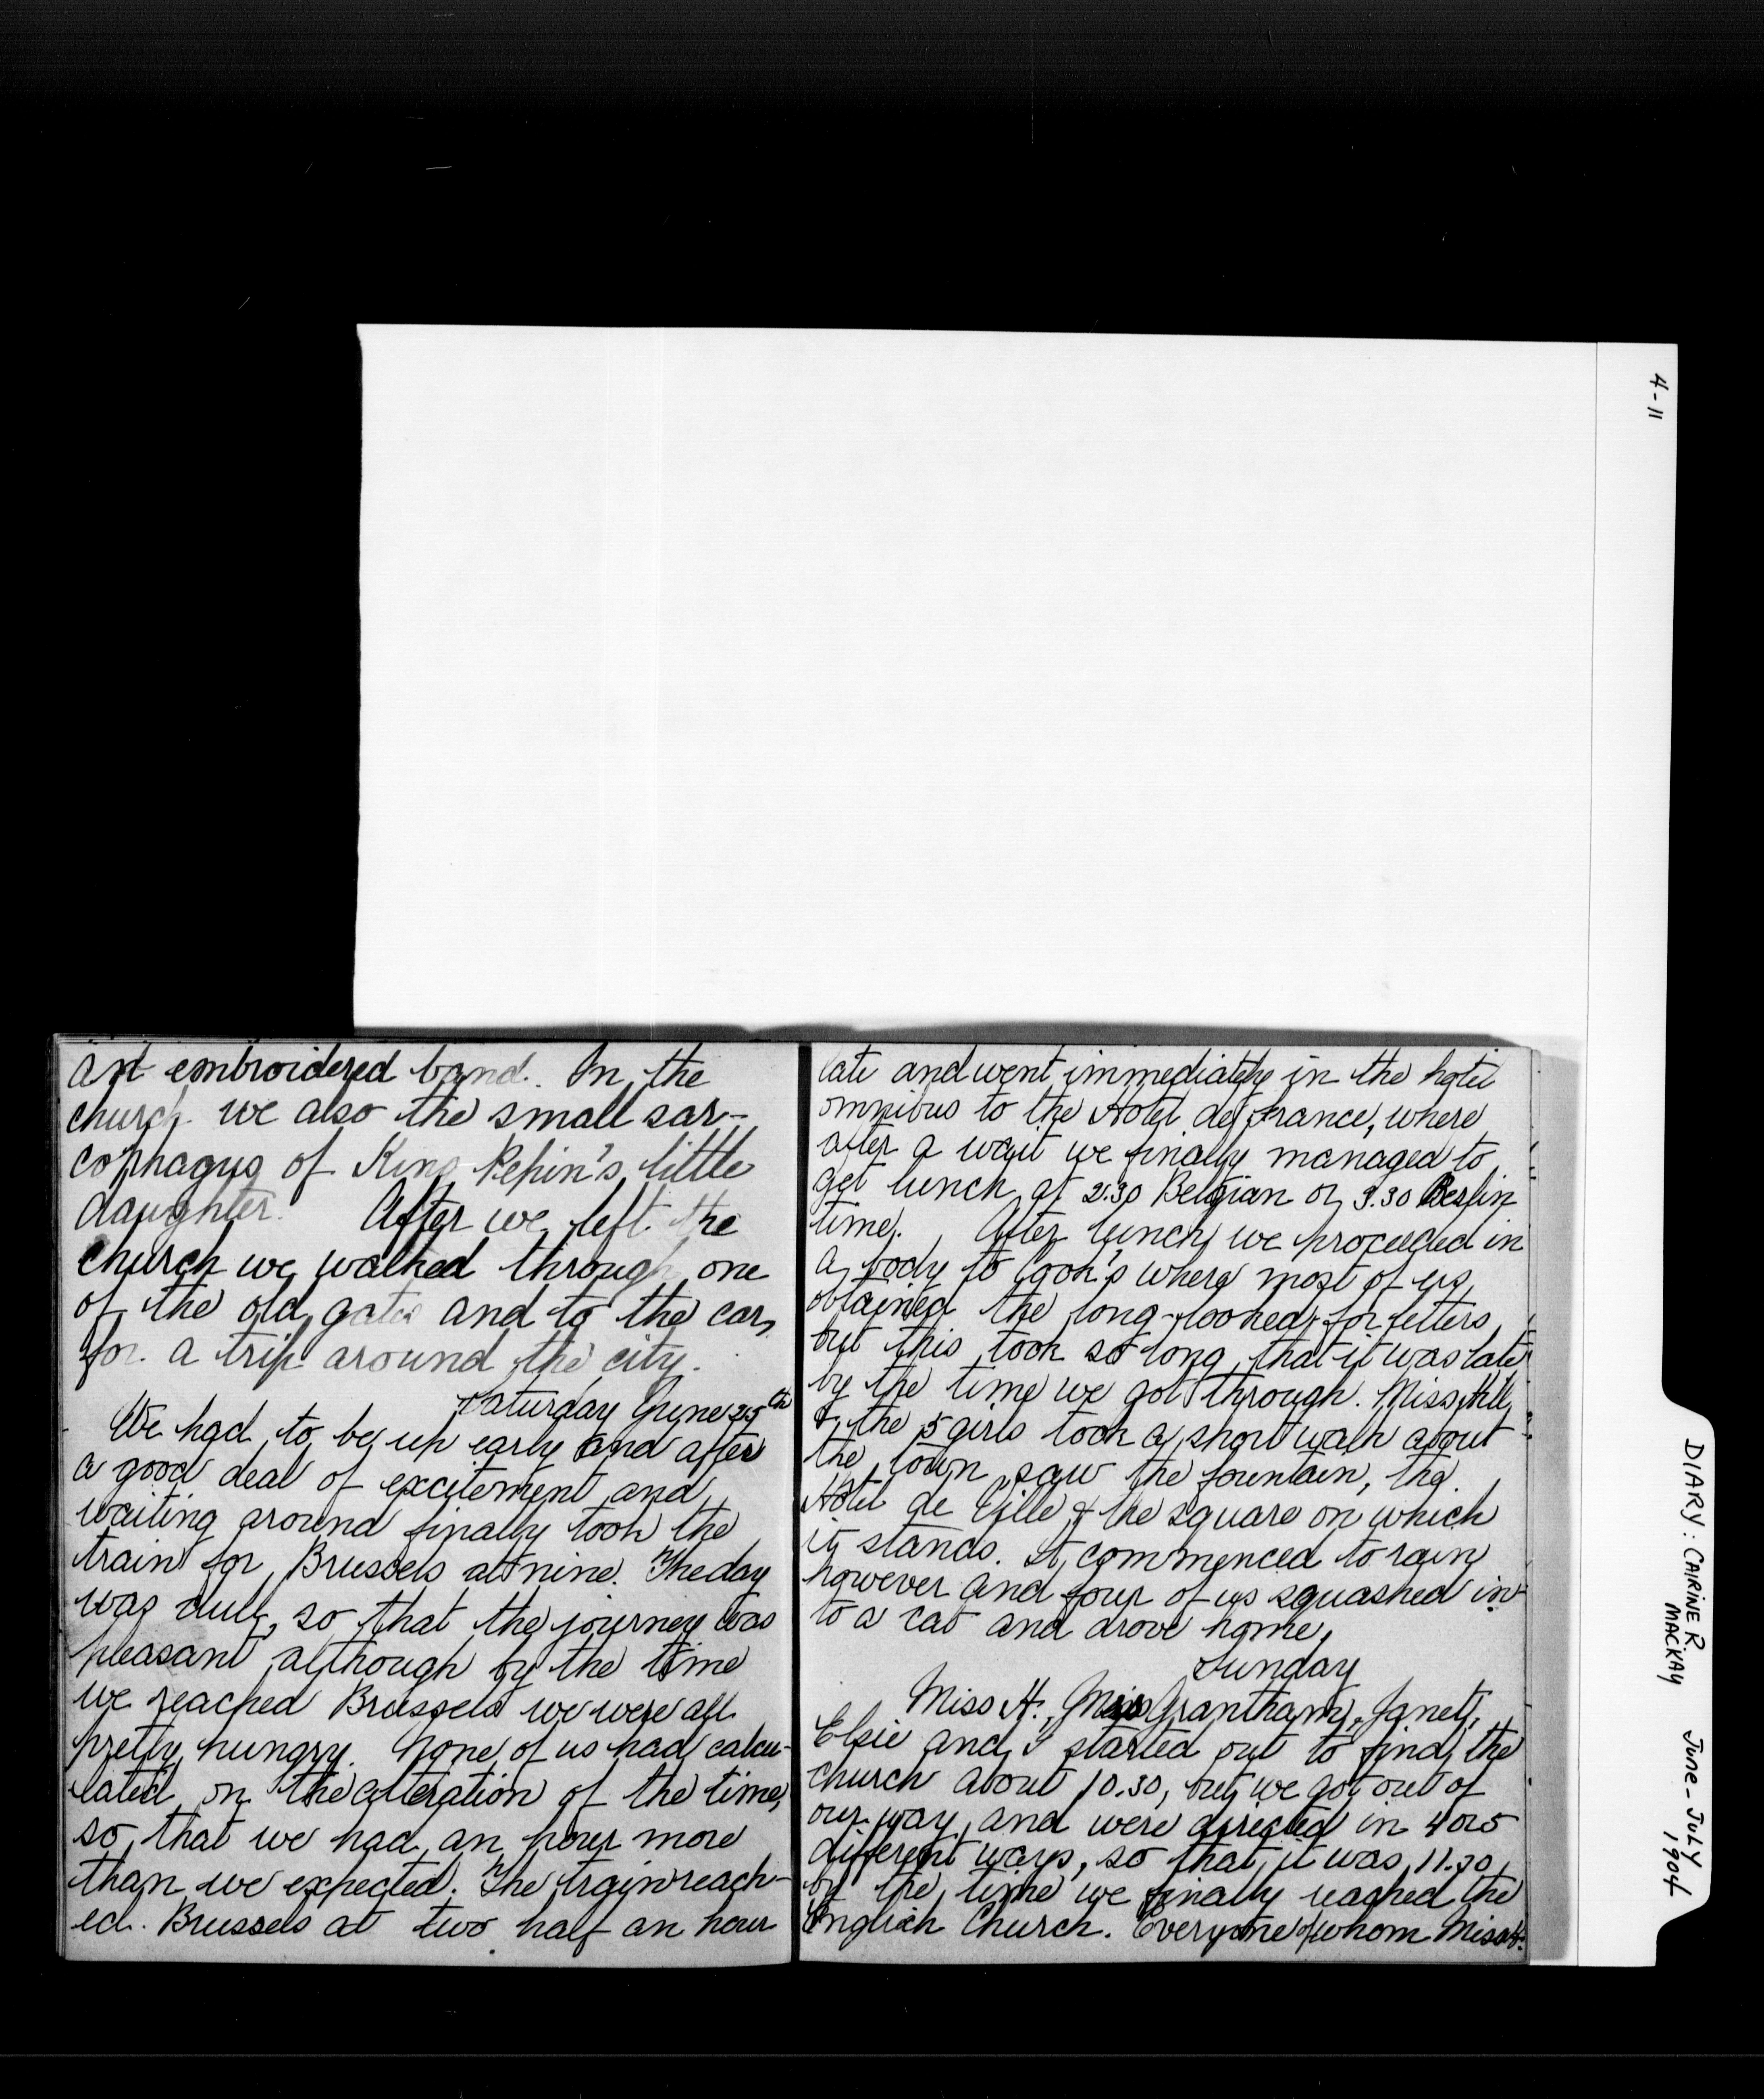 an embroidered band. In the
church we also the small sar-
cophagus of King Pepin's little
daughter. After we left the
church we walked through one
of the old gates and to the car,
for a trip around the city.
Saturday June 25th
We had to be up early and after
a good deal of excitement and
waiting around finally took the
train for Brussels at nine. The day
was dull, so that the journey was
pleasant although by the time
we reached Brussels we were all
pretty hungry. None of us had calcu-
lated on the alteration of the time,
so that we had an hour more
than we expected. The train reach-
ed Brussels at two half an hour
late and went immediately in the hotel
omnibus to the Hotel de France, where
after a wait we finally managed to
get lunch at 2.30 Belgian or 3.30 Berlin
time. After lunch we proceeded in
a body to Cook's where most of us
obtained the long-looked for letters,
but this took so long that it was late
by the time we got through. Miss Hill
& the 5 girls took a short walk about
the town, saw the fountain, the
Hôtel de Ville & the square on which
it stands. It commenced to rain
however and four of us squashed in
to a cab and drove home.
Sunday
Miss H., Miss Grantham, Janet,
Elsie and I started out to find the
church about 10.30, but we got out of
our way and were directed in 4 or 5
different ways, so that it was 11.30
by the time we finally reached the
English Church. Everyone of whom Miss H.
4-11
DIARY: CAIRINE R. MACKAY
June - July 1904